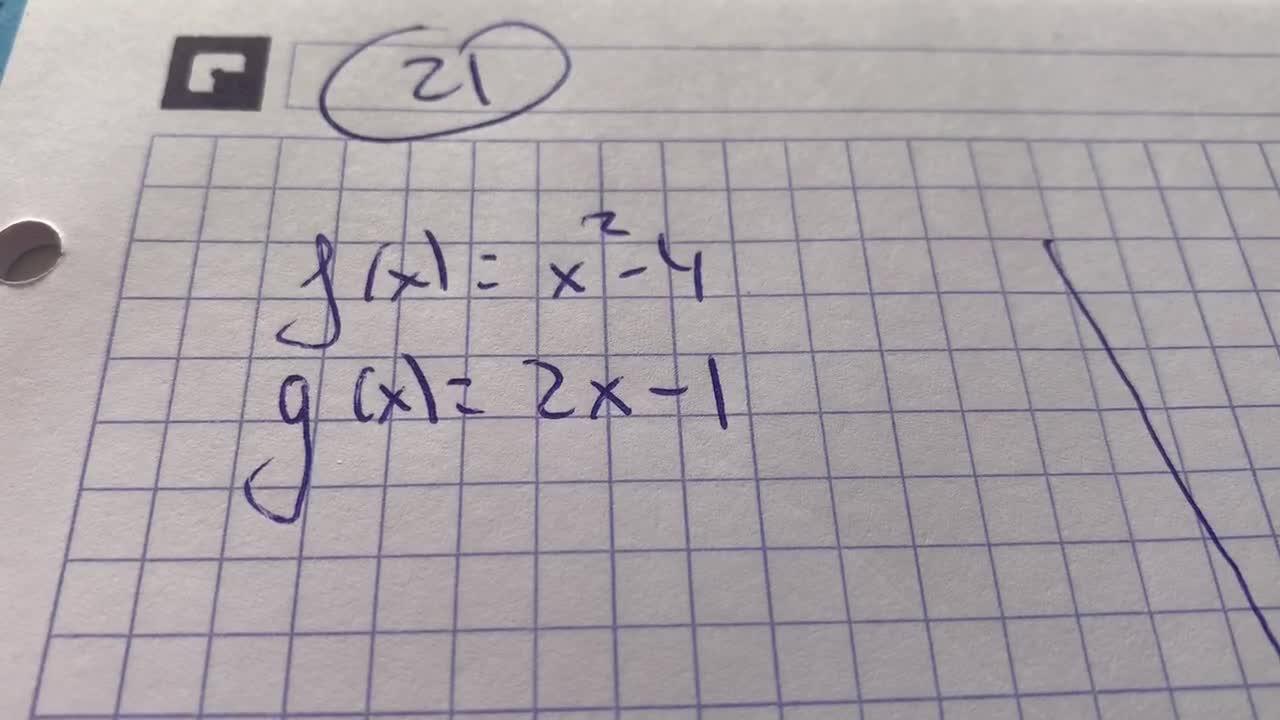 21
f(x) = x² - 4
g(x) = 2x - 1